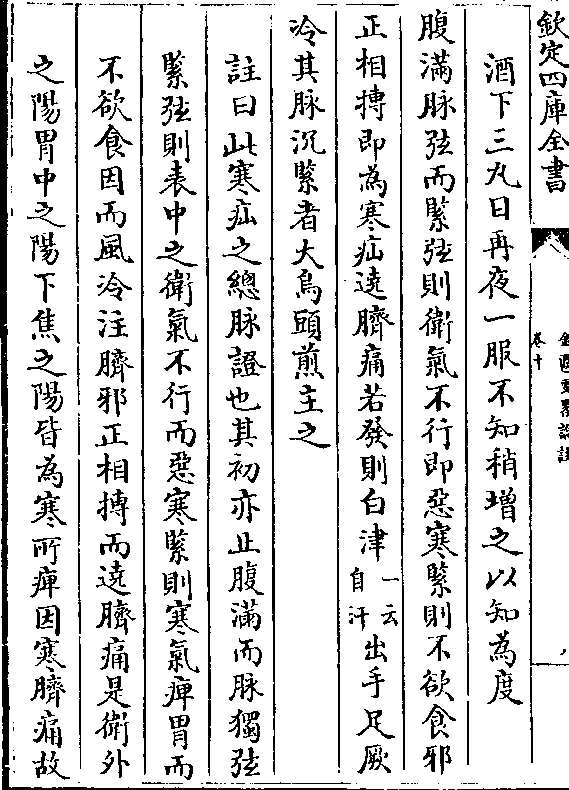 欽定四庫全書
卷十
酒下三丸日再夜一服不知稍增之以知為度
腹滿脉弦而緊弦則衛氣不行即惡寒緊則不欲食邪
正相搏即為寒疝遶臍痛若發則白津一云自汗出手足厥
冷其脉沉緊者大烏頭煎主之
註曰此寒疝之總脉證也其初亦止腹滿而脉獨弦
緊弦則表中之衛氣不行而惡寒緊則寒氣痺胃而
不欲食因而風冷注臍邪正相搏而遶臍痛是衛外
之陽胃中之陽下焦之陽皆為寒所痺因寒臍痛故